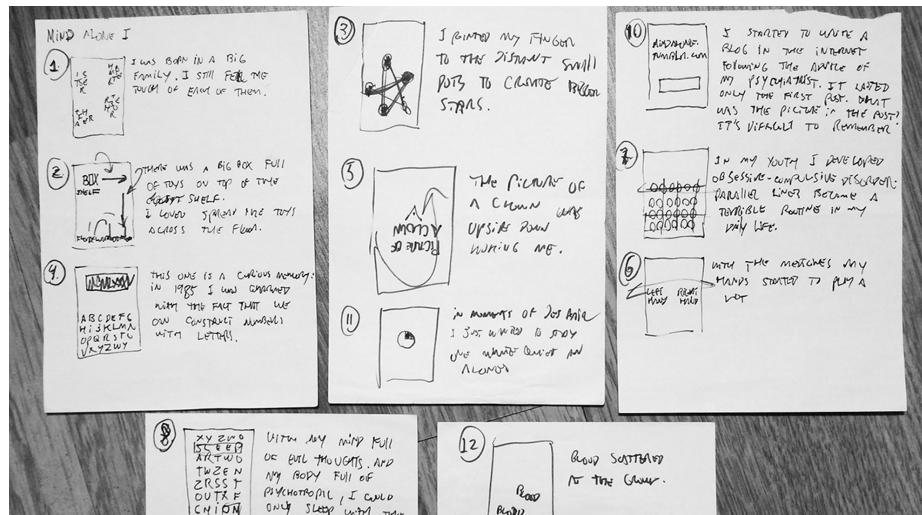 MIND ALONE I
1.
I WAS BORN IN A BIG
FAMILY. I STILL FEEL THE
TOUCH OF EACH OF THEM.
2
BOX
SHELF
THERE WAS A BIG BOX FULL
OF TOYS ON TOP OF THE
SHELF.
I LOVED SPREAD THE TOYS
ACROSS THE FLOOR.
4
ABCDEFG
HIJKLMN
OPQRSTU
VXYZWY
THIS ONE IS A CURIOUS MEMORY:
IN 1985 I WAS CHARMED
WITH THE FACT THAT WE
CAN CONSTRUCT NUMBERS
WITH LETTERS.
3
I POINTED MY FINGER
TO THE DISTANT SMALL
DOTS TO CREATE BIGGER
STARS.
5
PICTURE OF
A CLOWN
THE PICTURE OF
A CLOWN WAS
UPSIDE DOWN
LOOKING ME.
11
IN MOMENTS OF DESPAIR
I JUST WANTED TO STAY
ONE MINUTE QUIET AN
ALONE
10
MINDALONE.
TUMBLR.COM
I STARTED TO WRITE A
BLOG IN THE INTERNET
FOLLOWING THE ADVICE OF
MY PSYCHIATRIST. IT LASTED
ONLY THE FIRST POST. WHAT
WAS THE PICTURE IN THE POST?
IT'S DIFFICULT TO REMEMBER
7
IN MY YOUTH I DEVELOPED
OBSESSIVE-COMPULSIVE DISORDER:
PARALLEL LINES BECAME A
TERRIBLE ROUTINE IN MY
DAILY LIFE.
6
LEFT HAND
RIGHT HAND
WITH THE MATCHES MY
HANDS STARTED TO PLAY A
LOT
8
XYZWO
SLEEP
ARTWO
TWZEN
ZRSST
OUTXF
CNION
WITH MY MIND FULL
OF EVIL THOUGHTS. AND
MY BODY FULL OF
PSYCHOTROPIC, I COULD
ONLY SLEEP WITH
12
BLOOD
BLOOD
BLOOD SCATTERED
AT THE